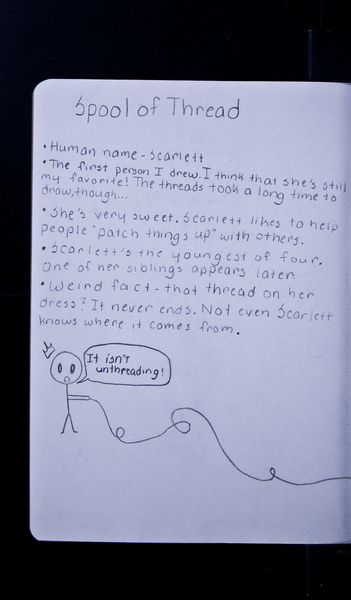 Spool of Thread
• Human name - Scarlett
• The first person I drew. I think that she's still
my favorite! The threads took a long time to
draw, though...
• She's very sweet. Scarlett likes to help
people "patch things up" with others.
• Scarlett's the youngest of four.
One of her siblings appears later.
• Weird fact - that thread on her
dress? It never ends. Not even Scarlett
knows where it comes from.
It isn't
unthreading!